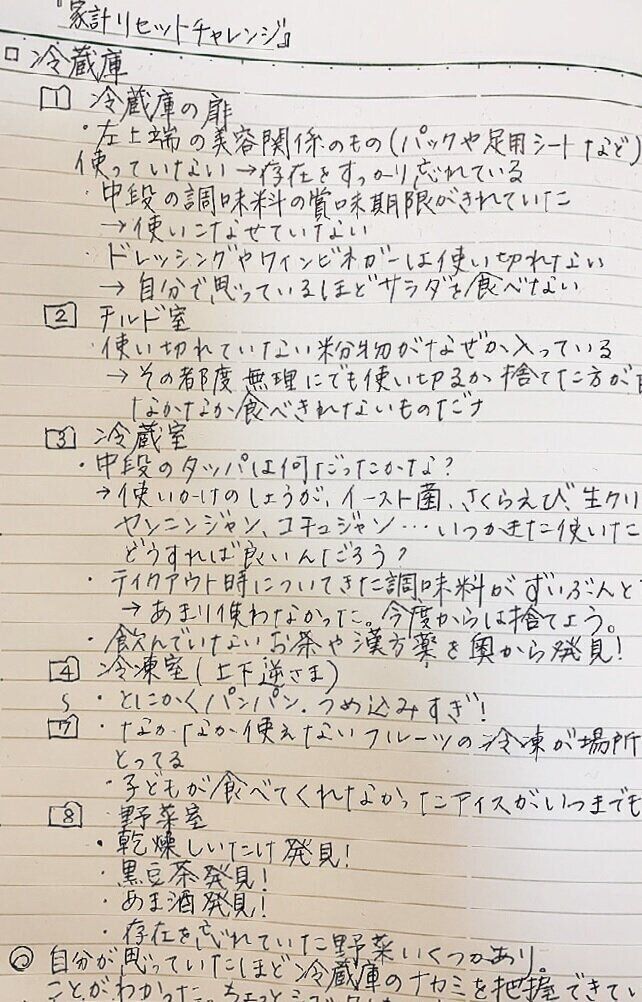 『家計リセットチャレンジ』
□ 冷蔵庫
1 冷蔵庫の扉
・左上端の美容関係のもの(パックや足用シートなど)
使っていない→存在をすっかり忘れている
・中段の調味料の賞味期限がきれていた
→使いこなせていない
・ドレッシングやワインビネガーは使い切れない
→ 自分で思っているほどサラダを食べない
2 チルド室
・使い切れていない粉物がなぜか入っている
→ その都度無理にでも使い切るか捨てた方が
なかなか食べきれないものだナ
3 冷蔵室
・中段のタッパは何だったかな?
→使いかけのしょうが、イースト菌、さくらえび、生クリ
ヤンニンジャン、コチュジャン…いつかまた使いた
どうすれば良いんだろう?
・テイクアウト時についてきた調味料がずいぶんと
→ あまり使わなかった。今度からは捨てよう。
・飲んでいないお茶や漢方薬を奥から発見!
4 冷凍室(上下逆さま)
〜 ・とにかくパンパン。つめ込みすぎ!
7 ・なかなか使えないフルーツの冷凍が場所
とってる
・子どもが食べてくれなかったアイスがいつまでも
8 野菜室
・乾燥しいたけ発見!
・黒豆茶発見!
・あま酒発見!
・存在を忘れていた野菜いくつかあり。
◎ 自分が思っていたほど冷蔵庫のナカミを把握できてい
ことがわかった。